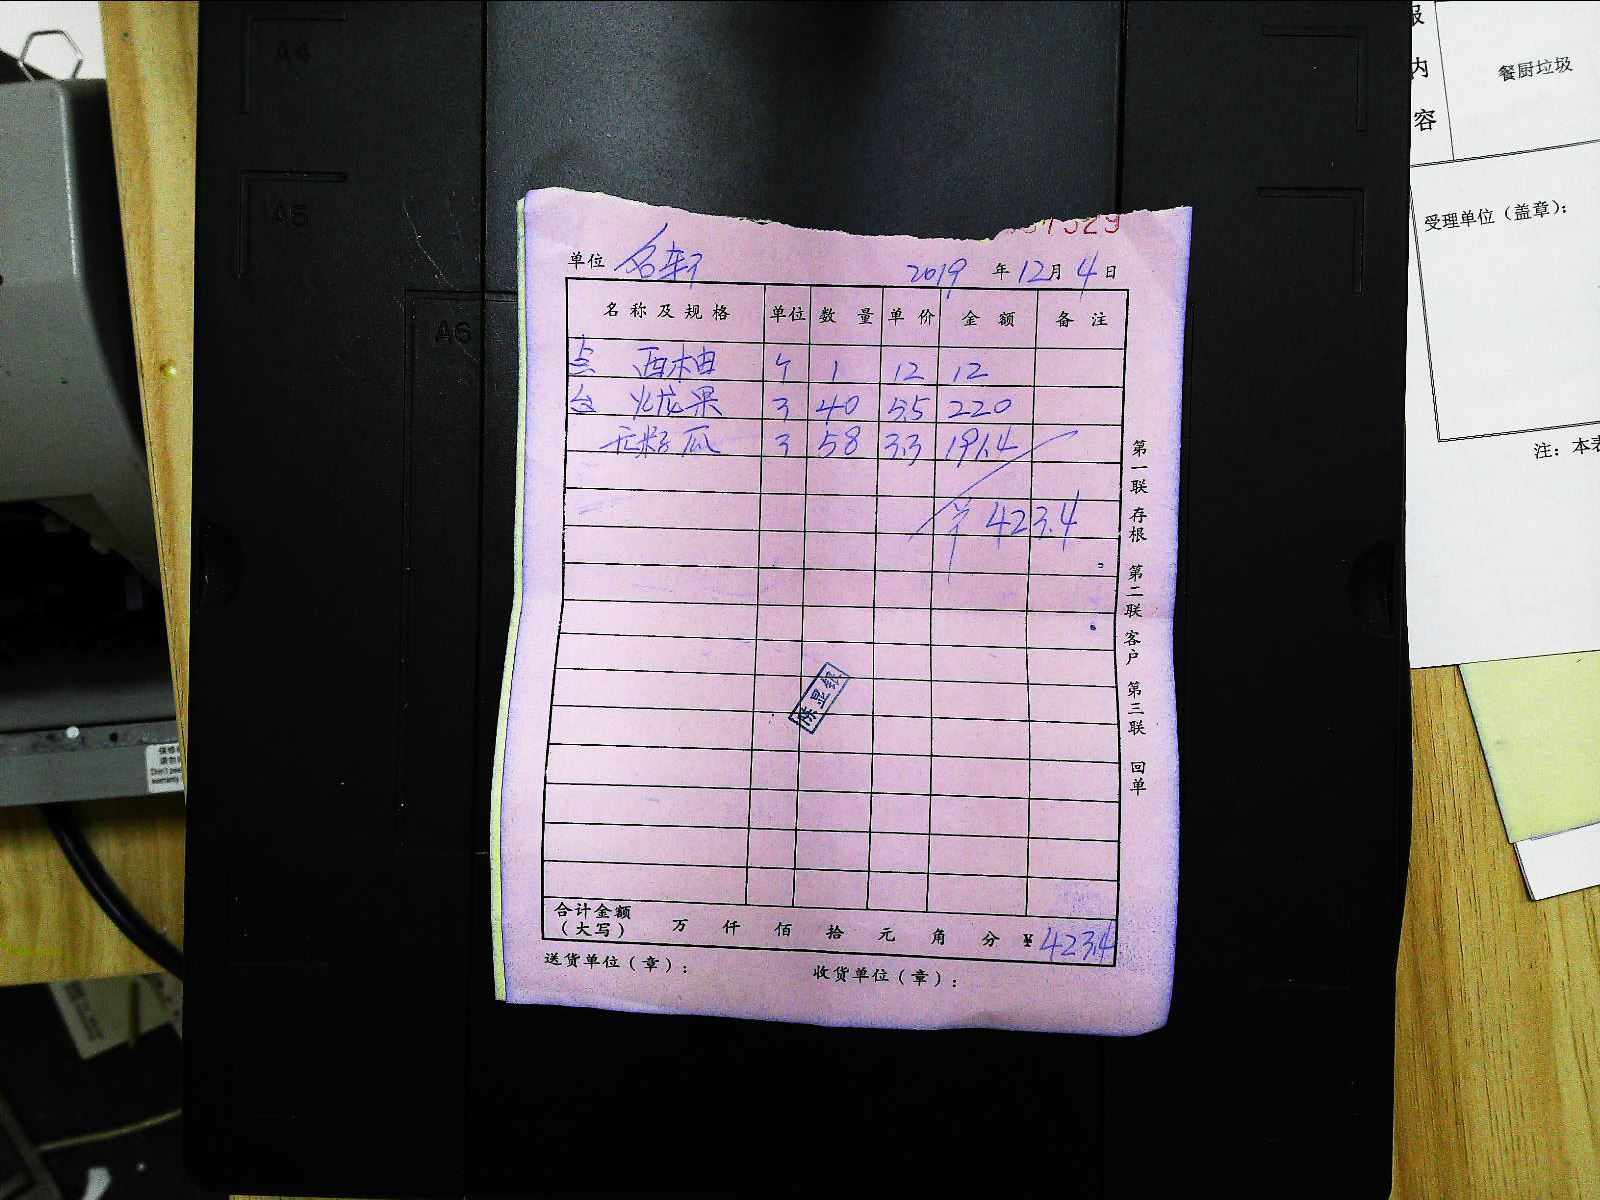 A4
A5
A6
57329
单位 名轩 2019 年 12 月 4 日
名称及规格 单位 数量 单价 金额 备注
点 西柚 个 1 12 12
火龙果 3 40 5.5 220
无籽瓜 3 58 3.3 191.4
¥ 423.4
合计金额
（大写） 万 仟 佰 拾 元 角 分 ¥ 423.4
送货单位（章）： 收货单位（章）：
第一联 存根 第二联 客户 第三联 回单
内
容
餐厨垃圾
受理单位（盖章）：
注：本表
Don't pee
warranty